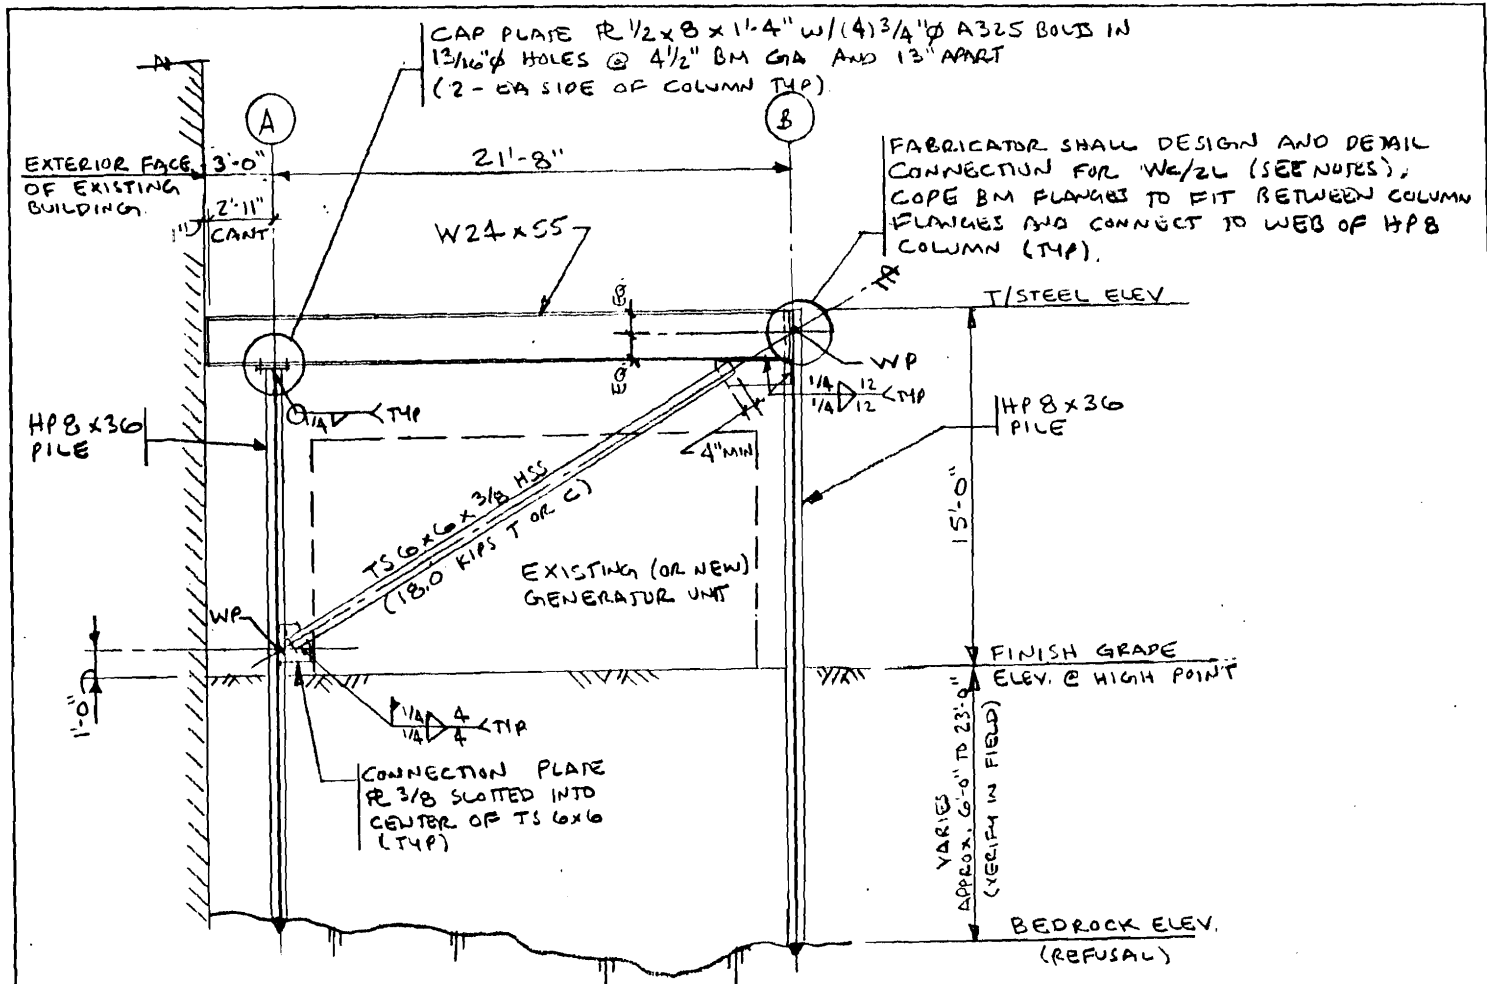 CAP PLATE PL 1/2 x 8 x 1'-4" W/(4) 3/4"Ø A325 BOLTS IN
13/16"Ø HOLES @ 4 1/2" BM GA AND 13" APART
(2 - EA SIDE OF COLUMN TYP)
A
B
EXTERIOR FACE
OF EXISTING
BUILDING.
3'-0"
21'-8"
2'-11"
CANT
1"
W24 x 55
FABRICATOR SHALL DESIGN AND DETAIL
CONNECTION FOR Wc/2L (SEE NOTES).
COPE BM FLANGES TO FIT BETWEEN COLUMN
FLANGES AND CONNECT TO WEB OF HP8
COLUMN (TYP).
T/STEEL ELEV
EQ.
EQ.
WP
1/4 12
1/4 12
TYP
1/4
TYP
4" MIN
HP 8 x 36
PILE
HP 8 x 36
PILE
15'-0"
TS 6 x 6 x 3/8 HSS
(18.0 KIPS T OR C)
EXISTING (OR NEW)
GENERATOR UNIT
WP
1'-0"
FINISH GRADE
ELEV. @ HIGH POINT
1/4 4
1/4 4
TYP
CONNECTION PLATE
PL 3/8 SLOTTED INTO
CENTER OF TS 6x6
(TYP)
VARIES
APPROX. 6'-0" TO 23'-0"
(VERIFY IN FIELD)
BEDROCK ELEV.
(REFUSAL)